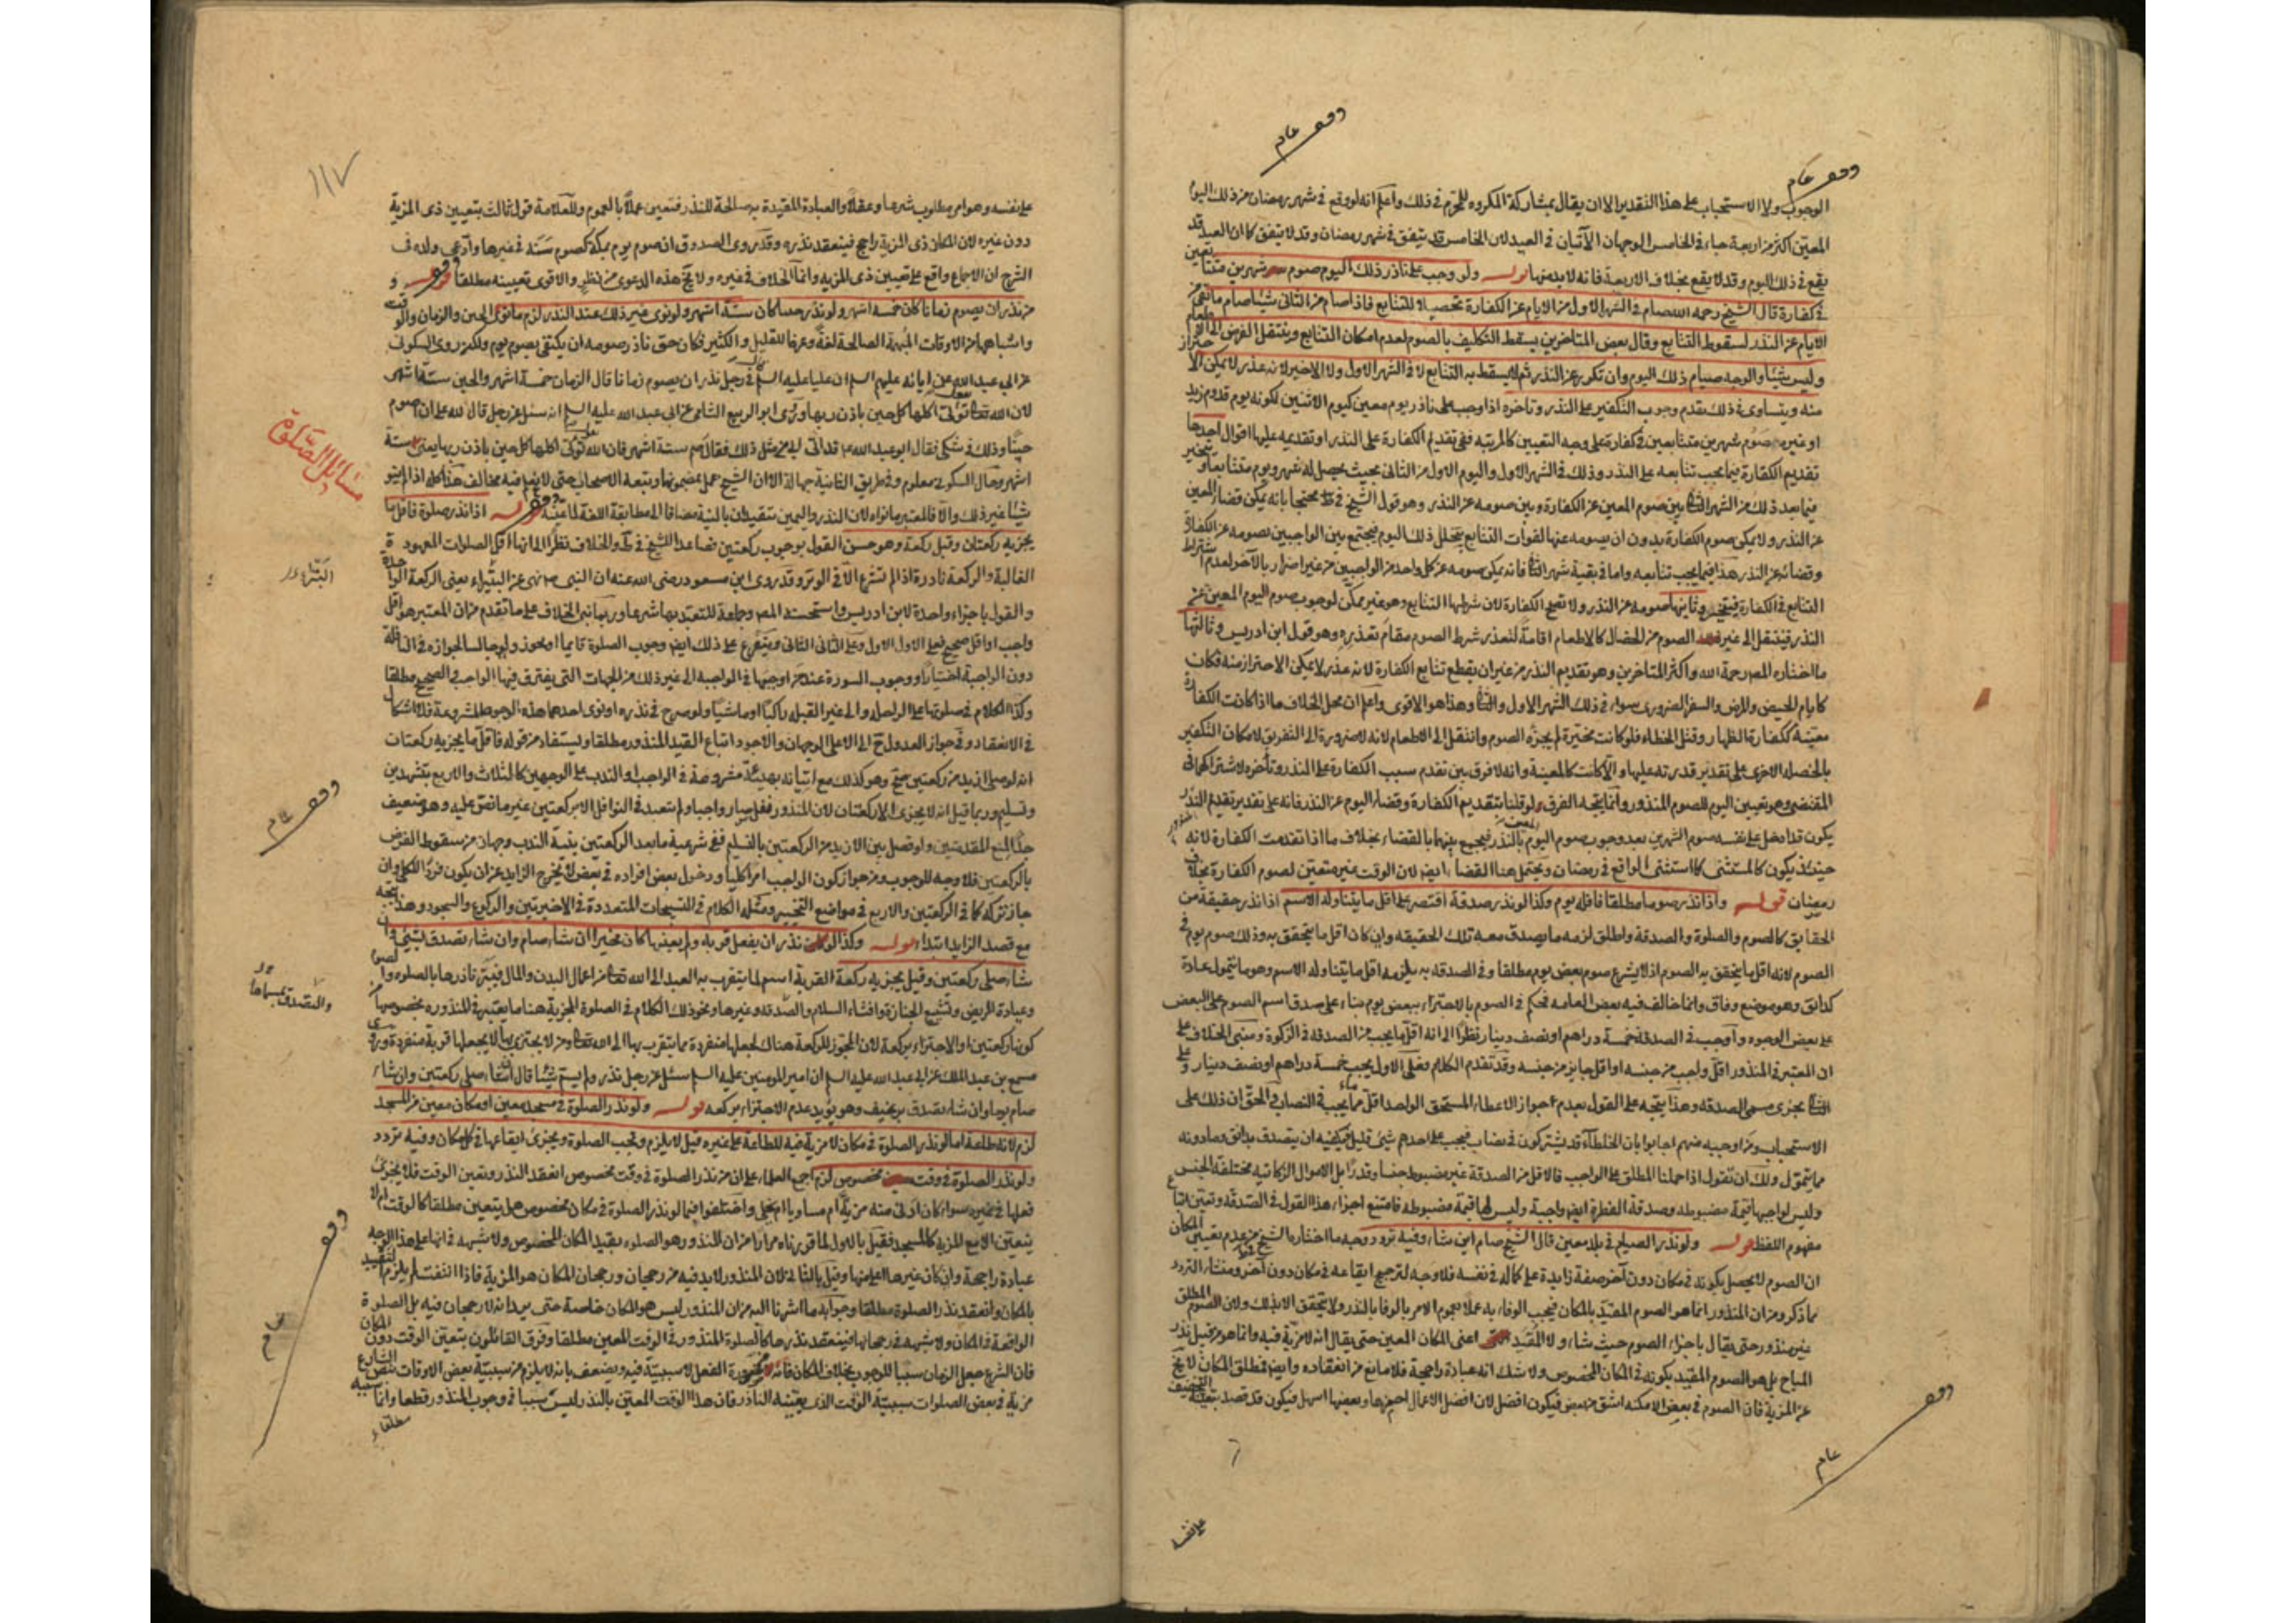 وقف عام
وقف عام
الوجوب ولا الاستحباب على هذا التقدير الا ان يقال بمشاركة المكروه للمحرم في ذلك واعلم انه لو وقع في شهر رمضان من ذلك اليوم
المعين اكثر من اربعة جاء في الخامس الوجهان الآتيان في العيد لان الخامس قد يتفق في شهر رمضان وقد لا يتفق كما ان العيد قد
يقع في ذلك اليوم وقد لا يقع بخلاف الاربعة فانه لابد منها قوله ولو وجب على ناذر ذلك اليوم صوم شهرين متتابعين
في كفارة قال الشيخ رحمه الله صام في الشهر الاول من الايام عن الكفارة تحصيلا للتتابع فاذا صام من الثاني شيئا صام ما بقي من
الايام عن النذر لسقوط التتابع وقال بعض المتاخرين يسقط التكليف بالصوم لعدم امكان التتابع وينتقل الفرض الى الاطعام
وليس شيئا والوجه صيام ذلك اليوم وان تكرر عن النذر ثم لا يسقط به التتابع لا في الشهر الاول ولا الاخير لانه عذر لا يمكن الاحتراز
منه ويتساوى في ذلك تقدم وجوب التكفير على النذر وتاخره اذا وجب على ناذر يوم معين كيوم الاثنين لكونه يوم قدوم زيد
او غيره صوم شهرين متتابعين في كفارة على وجه التعيين كالمرتبه ففي تقديم الكفارة على النذر او تقديمه عليها اقوال احدها
تقديم الكفارة فيما يجب تتابعه على النذر وذلك في الشهر الاول واليوم الاول من الثاني بحيث يحصل له شهر ويوم متتابعا ويتخير
فيما بعد ذلك من الشهر الثاني بين صوم المعين عن الكفارة وبين صومه عن النذر وهو قول الشيخ في ط محتجا بانه يمكن قضاء المعين
عن النذر ولا يمكن صوم الكفارة بدون ان يصومه عنها لفوات التتابع بتخلل ذلك اليوم فيجتمع بين الواجبين بصومه عن الكفارة
وقضائه عن النذر هذا فيما يجب تتابعه واما في بقية شهر الثاني فانه يمكن صومه عن كل واحد من الواجبين من غير اضرار بالآخر لعدم اشتراط
التتابع في الكفارة فيتخير وثانيها صومه عن النذر ولا تصح الكفارة لان شرطها التتابع وهو غير ممكن لوجوب صوم اليوم المعين عن
النذر فينتقل الى غير الصوم من الخصال كالاطعام اقامة لتعذر شرط الصوم مقام تعذره وهو قول ابن ادريس وثالثها
ما اختاره المص رحمة الله واكثر المتاخرين وهو تقديم النذر من غير ان يقطع تتابع الكفارة لانه عذر لا يمكن الاحتراز منه فكان
كايام الحيض والمرض والسفر الضروري سواء في ذلك الشهر الاول والثاني وهذا هو الاقوى واعلم ان محل الخلاف ما اذا كانت الكفارة
معينة ككفارة الظهار وقتل الخطاء فلو كانت مخيرة لم يجزه الصوم وانتقل الى الاطعام لانه لا ضرورة الى التفريق لامكان التكفير
بالخصله الاخرى على تقدير قدرته عليها والا كانت كالمعينة وانه لا فرق بين تقدم سبب الكفارة على النذر وتأخره لاشتراكهما في
المقتضى وهو تعيين اليوم للصوم المنذور وانما يتجه الفرق لو قلنا بتقديم الكفارة وقضاء اليوم عن النذر فانه على تقدير تقدم النذر
يكون قد ادخل على نفسه صوم الشهرين بعد وجوب صوم اليوم المعين بالنذر فيجمع بينهما بالقضاء بخلاف ما اذا تقدمت الكفارة لانه
حينئذ يكون كالمستثنى كما استثنى الواقع في رمضان ويحتمل هنا القضاء ايضا لان الوقت غير متعين لصوم الكفارة بخلاف
رمضان قوله واذا نذر صوما مطلقا فاقله يوم وكذا لو نذر صدقة اقتصر على اقل ما يتناوله الاسم اذا نذر حقيقة من
الحقايق كالصوم والصلوة والصدقة واطلق لزمه ما يصدق معه تلك الحقيقه وان كان اقل ما يتحقق به وذلك صوم يوم في
الصوم لانه اقل ما يتحقق به الصوم اذ لا يشرع صوم بعض يوم مطلقا وفي الصدقه به يلزمه اقل ما يتناوله الاسم وهو ما يتمول عادة
كدانق وهو موضع وفاق وانما خالف فيه بعض العامه فحكم في الصوم بالاجتزاء ببعض يوم بناء على صدق اسم الصوم على البعض
على بعض الوجوه واوجب في الصدقه خمسة دراهم او نصف دينار نظرا الى انه اقل ما يجب من الصدقه في الزكوة ومبنى الخلاف على
ان المعتبر في المنذور اقل واجب من جنسه او اقل جايز من جنسه وقد تقدم الكلام فعلى الاول يجب خمسة دراهم او نصف دينار وعلى
الثاني يجزى مسمى الصدقه وهذا يتجه على القول بعدم جواز الاعطاء المستحق الواحد اقل مما يجب في النصاب في الحق ان ذلك على
الاستحباب ومن اوجبه منهم اجابوا بان الخلطاء قد يشتركون في نصاب فيجب على احدهم شئ قليل فيكفيه ان يتصدق بدانق وما دونه
مما يتمول ولك ان تقول اذا حملنا المطلق على الواجب فالاقل من الصدقة غير مضبوط جنسا وقدرا بل الاموال الزكاتيه مختلفة الجنس
وليس لواجبها قيمة مضبوطه وصدقة الفطرة ايضا واجبة وليس لها قيمة مضبوطه فامتنع اجزاء هذا القول في الصدقه وتعين اتباع
مفهوم اللفظ قوله ولو نذر الصيام في بلد معين قال الشيخ صام اين شاء وفيه تردد وجه ما اختاره الشيخ من عدم تعيين المكان
ان الصوم لا يحصل بكونه في مكان دون آخر صفة زايدة على كماله في نفسه فلا وجه لترجيح ايقاعه في مكان دون آخر ومنشاء التردد
مما ذكر ومن ان المنذور انما هو الصوم المقيد بالمكان فيجب الوفاء به عملا بعموم الامر بالوفا بالنذر ولا يتحقق الا بذلك ولان الصوم المطلق
غير منذور حتى يقال باجزاء الصوم حيث شاء ولا المقيد اعنى المكان المعين حتى يقال انه لا مزية فيه وانما هو من قبيل نذر
المباح بل هو الصوم المقيد بكونه في المكان المخصوص ولا شك انه عبادة راجحة فلا مانع من انعقاده وايضا فمطلق المكان لا يخ
عن المزية فان الصوم في بعض الامكنه اشق من بعض فيكون افضل لان افضل الاعمال احمزها وبعضها اسهل فيكون قد قصد بتعيينه التخفيف
وقف عام
على نفسه
١١٧
على نفسه وهو امر مطلوب شرعا وعقلا والعبادة المقيدة به صالحة للنذر فتعين عملا بالعموم وللعلامة قول ثالث بتعيين ذى المزية
دون غيره لان المكان ذى المزية راجح فينعقد نذره وقد روى الصدوق ان صوم يوم بمكة كصوم سنة في غيرها وادعى ولده في
الشرح ان الاجماع واقع على تعيين ذى المزيه وانما الخلاف في غيره ولا يخ هذه الدعوى من نظر والاقوى تعيينه مطلقا قوله و
من نذر ان يصوم زمانا كان خمسة اشهر ولو نذر حينا كان ستة اشهر ولو نوى غير ذلك عند النذر لزم ما نوى الحين والزمان والوقت
واشباهها من الاوقات المبهمة الصالحة لغة وعرفا للقليل والكثير فكان حق ناذر صومه ان يكتفى بصوم يوم ولكن روى السكونى
عن ابى عبد الله عن ابائه عليهم السلم ان عليا عليه السلم في رجل نذر ان يصوم زمانا قال الزمان خمسة اشهر والحين ستة اشهر
لان الله تعالى يقول تؤتى اكلها كل حين باذن ربها وروى ابو الربيع الشامى عن ابى عبد الله عليه السلم انه سئل عن رجل قال لله على ان اصوم
حينا وذلك في شكر فقال ابو عبد الله ع قد اتى ابى في مثل ذلك فقال صم ستة اشهر فان الله تعالى يقول تؤتى اكلها كل حين باذن ربها يعنى ستة
اشهر وحال السكونى معلوم وفي طريق الثانية جهالة الا ان الشيخ عمل بمضمونها وتبعه الاصحاب حتى لا يعلم فيه مخالف هذا كله اذا لم ينو
شيئا غير ذلك والا فالمعتبر ما نواه لان النذر واليمين يتقيدان بالنية مضافا الى مطابقة اللغة لما عينه قوله اذا نذر صلوة فاقل ما
يجزيه ركعتان وقيل ركعة وهو حسن القول بوجوب ركعتين فصاعدا للشيخ في ف والخلاف نظرا الى انهما اقل الصلوات المعهودة
الغالبة والركعة نادرة اذا لم تشرع الا في الوتر وقد روى ابن مسعود رضى الله عنه ان النبى ص نهى عن البتيراء يعنى الركعة الواحدة
والقول باجتزاء واحدة لابن ادريس واستحسنه المص وجماعة للتعبد بها شرعا وربما بنى الخلاف على ما تقدم من ان المعتبر هو اقل
واجب او اقل صحيح فعلى الاول الاول وعلى الثانى الثانى ويتفرع على ذلك ايضا وجوب الصلوة قايما او يجوز ولو جالسا لجوازه في النافلة
دون الواجبة اختيارا ووجوب السورة عند من اوجبها في الواجبة الى غير ذلك من الجهات التى يفترق فيها الواجب والصحيح مطلقا
وكذا الكلام في صلوتها على الراحله والى غير القبله راكبا او ماشيا ولو صرح في نذره او نوى احد هذه الوجوه المشروعة فلا اشكال
في الانعقاد وفي جواز العدول ح الى الاعلى الوجهان والاجود اتباع القيد المنذور مطلقا ويستفاد من قوله فاقل ما يجزيه ركعتان
انه لو صلى ازيد من ركعتين صح وهو كذلك مع اتيانه بهيئة مشروعة في الواجب او الندب على الوجهين كالثلاث والاربع بتشهدين
وتسليم وربما قيل انه لا يجزى الا ركعتان لان المنذور نفل صار واجبا ولم يتعبد في النوافل الا بركعتين غير ما نص عليه وهو ضعيف
جدا لمنع المقدمتين ولو فصل بين الازيد من الركعتين بالتسليم ففي شرعية ما بعد الركعتين بنية الندب وجهان من سقوط الفرض
بالركعتين فلا وجه للوجوب ومن جواز كون الواجب امرا كليا ودخول بعض افراده في بعض لا يخرج الزايد عن ان يكون فردا للكلى وان
جاز تركه كما في الركعتين والاربع في مواضع التخيير ومثله الكلام في التسبيحات المتعددة في الاخيرتين والركوع والسجود وهذا يتجه
مع قصد الزايد ابتداء قوله وكذا لو نذر ان يفعل قربه ولم يعينها كان مخيرا ان شاء صام وان شاء تصدق بشئ وان
شاء صلى ركعتين وقيل يجزيه ركعة القربة اسم لما يتقرب به العبد الى الله تعالى من اعمال البدن والمال فيبرء ناذرها بالصلوه والصوم
وعيادة المريض وتشييع الجنازة وافشاء السلام والصدقه وغيرها ونحو ذلك الكلام في الصلوة المجزية هنا ما يعتبر في المنذوره بخصوصها من
كونها ركعتين او الاجتزاء بركعة لان المجوز للركعة هناك لجعلها منفردة مما يتقرب بها الى الله تعالى ومن لا يجتزى بها لا يجعلها قربة منفردة وروى
مسمع بن عبد الملك عن ابى عبد الله عليه السلم ان امير المومنين عليه السلم سئل عن رجل نذر ولم يسم شيئا قال ان شاء صلى ركعتين وان شاء
صام يوما وان شاء تصدق برغيف وهو يؤيد عدم الاجتزاء بركعه قوله ولو نذر الصلوة في مسجد معين او مكان معين من المسجد
لزم لانه طاعة اما لو نذر الصلوة في مكان لا مزية فيه للطاعة على غيره قيل لا يلزم وتجب الصلوة ويجزى ايقاعها في كل مكان وفيه تردد
ولو نذر الصلوة في وقت مخصوص لزم اجمع العلماء على ان من نذر الصلوة في وقت مخصوص انعقد النذر وتعين الوقت فلا يجزى
فعلها في غيره سواء كان ادنى منه مزية ام مساويا ام اعلى واختلفوا فيما لو نذر الصلوة في مكان مخصوص هل يتعين مطلقا كالوقت ام لا
يتعين الا مع المزية كالمسجد فقيل بالاول لما قررناه مرارا من ان المنذور هو الصلوه بقيد المكان المخصوص ولا شبهه في انها على هذا الوجه
عبادة راجحة وان كان غيرها اعلى منها وقيل بالثانى لان المنذور لابد فيه من رجحان ورجحان المكان هو المزية فاذا انتفت لم يلزم التقييد
بالمكان وانعقد نذر الصلوة مطلقا وجوابه ما اشرنا اليه من ان المنذور ليس هو المكان خاصة حتى يرد انه لا رجحان فيه بل الصلوة
الواقعة في المكان ولا شبهه في رجحانها فينعقد نذرها كالصلوة المنذورة في الوقت المعين مطلقا وفرق القائلون بتعين الوقت دون المكان
فان الشرع جعل الزمان سببا للوجوب بخلاف المكان فانه من ضرورة الفعل لا سببية فيه ويضعف بانه لا يلزم من سببية بعض الاوقات بنص الشارع
مزية في بعض الصلوات سببية الوقت الذى يعينه الناذر فان هذا الوقت المعين بالنذر ليس سببا في وجوب المنذور قطعا وانما سببيه
مطلقا
مسائل الصلوة
البتراء
وقف عام
وقف عام